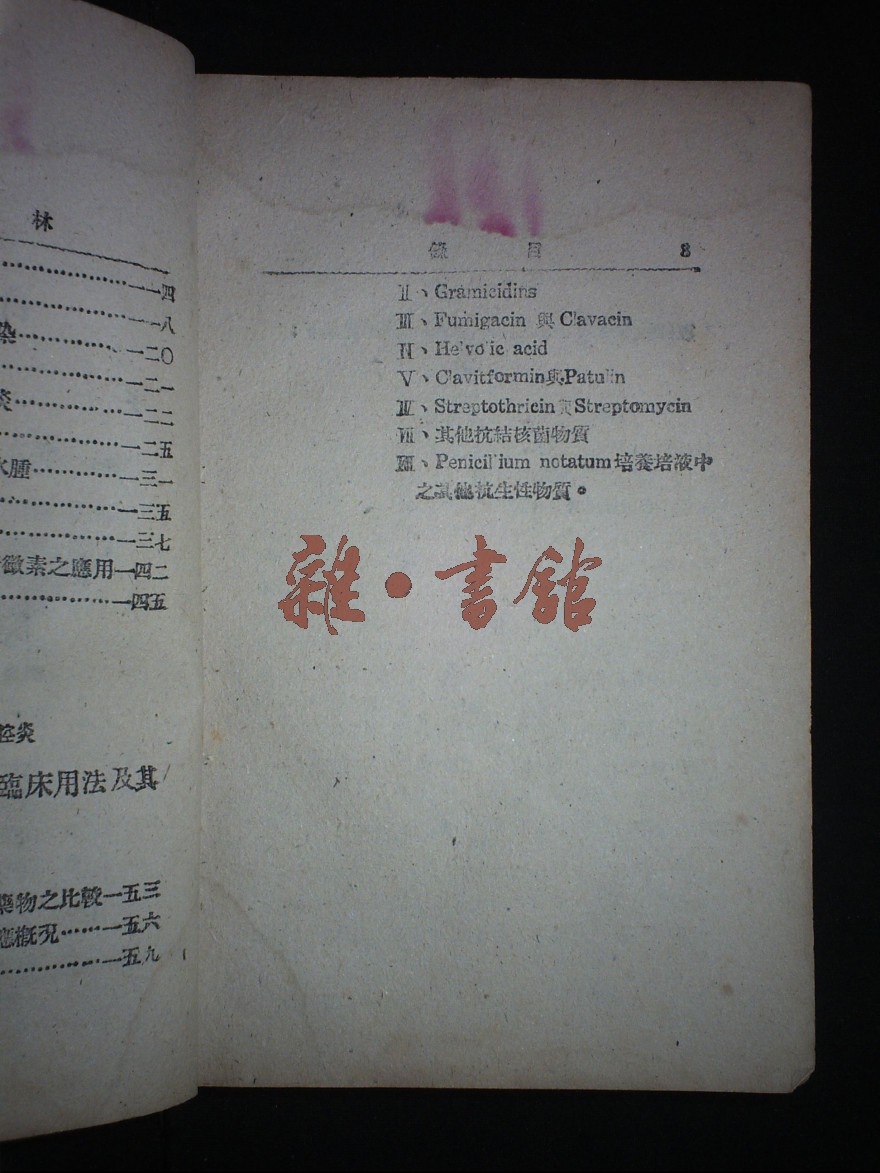 林
一一四
一一八
染…………一二〇
一二一
炎…………一二二
一二五
水腫…………一三一
一三五
一三七
黴素之應用一四二
一四五
腔炎
臨床用法及其
藥物之比較一五三
應概況……一五六
一五九
錄 目 3
II、Gramicidins
III、Fumigacin 與 Clavacin
IV、Helvolic acid
V、Clavitformin與Patulin
VI、Streptothricin與Streptomycin
VII、其他抗結核菌物質
VIII、Penicillium notatum培養培液中
之其他抗生性物質。
雜•書館